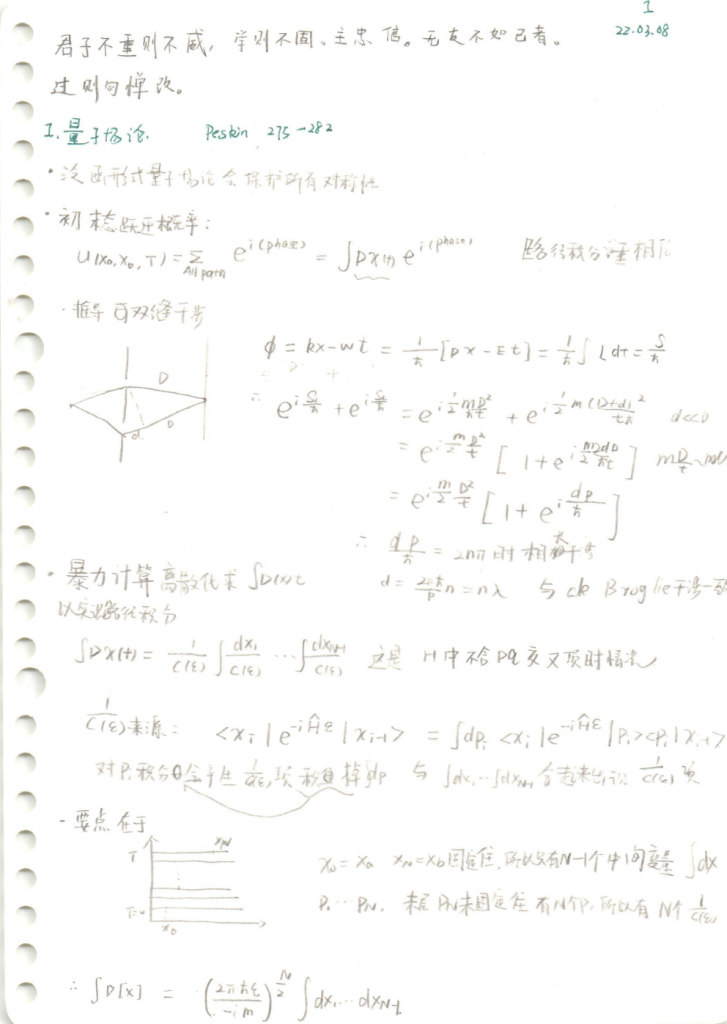 I
22.03.08
君子不重则不威，学则不固、主忠信。无友不如己者。
过则勿惮改。
I. 量子场论. Peskin 275-282
• 泛函形式量子场论会保护所有对称性
• 初末态跃迁概率:
U(x₀, x₀, T) = Σ_{All path} e^{i(phase)} = ∫Dx(t) e^{i(phase)} 路径积分 相位
· 推导 双缝干涉
φ = kx - wt = 1/ħ [Px - Et] = 1/ħ ∫ L dt = S/ħ
D
D
d
∴ e^{i S/ħ} + e^{i S/ħ} = e^{i 1/2 m D²/tħ} + e^{i 1/2 m (D+d)²/tħ} d<<D
= e^{i m/2 D²/t} [ 1 + e^{i m/2 2dD/ħt} ] m D/t
= e^{i m/2 D²/t} [ 1 + e^{i dp/ħ} ]
∴ dp/ħ = 2nπ 时相干
• 暴力计算离散化求 ∫D(x)t d = 2πħ/p n = nλ 与 de Broglie 干涉一致
以实现路径积分
∫Dx(t) = 1/C(ε) ∫ dx₁/C(ε) ⋯ ∫ dx_{N-1}/C(ε) 这是 H 中不含 PQ 交叉项时情况
1/C(ε) 来源: <x_i | e^{-iĤε} | x_{i-1}> = ∫dp_i <x_i | e^{-iĤε} | P_i> <P_i | x_{i-1}>
对 P_i 积分会产生 1/C(ε) 项 积掉 dp 与 ∫dx₁⋯∫dx_{N-1} 合起来出现 1/C(ε) 项
· 要点在于
T
x_N
T=0
x₀
x₀ = x_a x_N = x_b 固定住, 所以有 N-1 个中间变量 ∫dx
P₁⋯P_N. 未固定住 有 N个P, 所以有 N个 1/C(ε)
∴ ∫D[x] = (2πħε/-im)^{N/2} ∫dx₁⋯dx_{N-1}